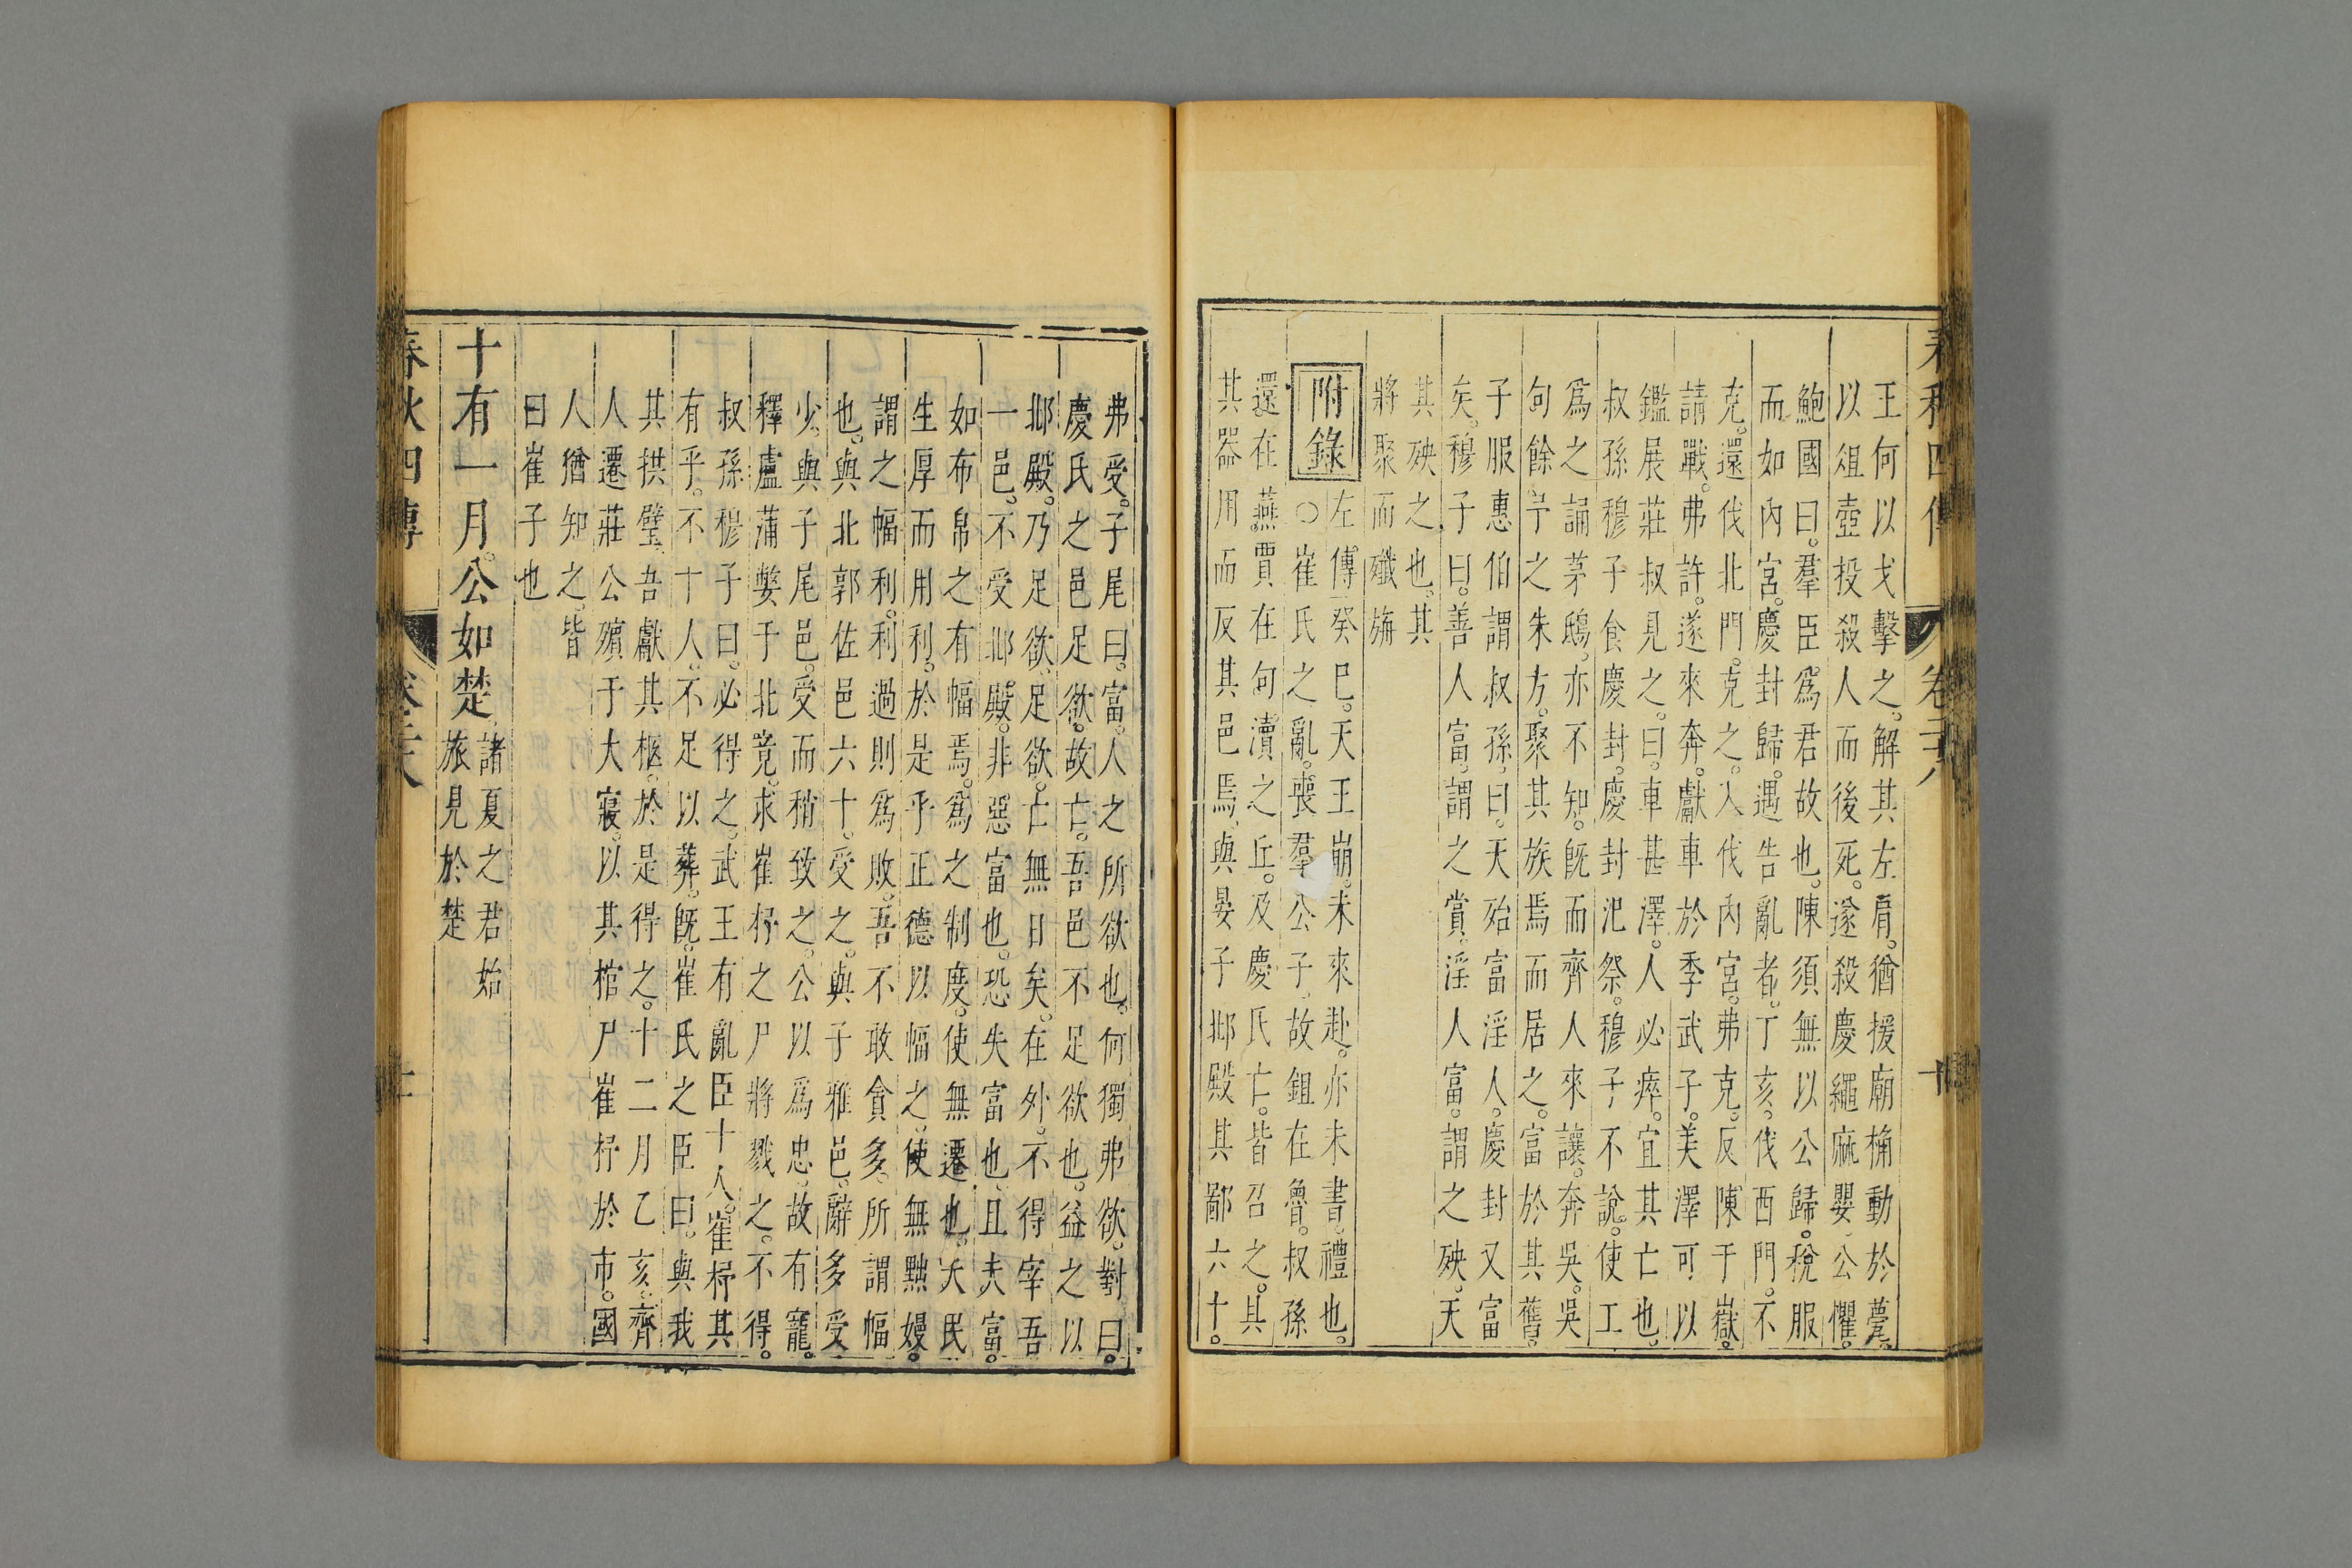 春秋四傳 卷二十八
王何以戈擊之。解其左肩。猶援廟桷動於甍。
以俎壺投殺人而後死。遂殺慶繩麻嬰。公懼。
鮑國曰。羣臣爲君故也。陳須無以公歸。稅服
而如內宮。慶封歸。遇告亂者。丁亥。伐西門。不
克。還伐北門。克之。入伐內宮。弗克。反陳于嶽。
請戰。弗許。遂來奔。獻車於季武子。美澤可以
鑑展莊叔見之。曰。車甚澤。人必瘁。宜其亡也。
叔孫穆子食慶封。慶封氾祭。穆子不說。使工
爲之誦茅鴟。亦不知。旣而齊人來讓。奔吳。吳
句餘予之朱方。聚其族焉而居之。富於其舊。
子服惠伯謂叔孫。曰。天殆富淫人。慶封又富
矣。穆子曰。善人富。謂之賞。淫人富。謂之殃。天
其殃之也。其
將聚而殲旃
附錄
左傳癸巳。天王崩。未來赴。亦未書。禮也。
○崔氏之亂。喪羣公子。故鉏在魯。叔孫
還在燕。賈在句瀆之丘。及慶氏亡。皆召之。其
其器用而反其邑焉。與晏子邶殿其鄙六十。
弗受。子尾曰。富。人之所欲也。何獨弗欲。對曰。
慶氏之邑足欲。故亡。吾邑不足欲也。益之以
邶殿。乃足欲。足欲。亡無日矣。在外。不得宰吾
一邑。不受邶殿。非惡富也。恐失富也。且夫富。
如布帛之有幅焉。爲之制度。使無遷也。夫民
生厚而用利。於是乎正德以幅之。使無黜嫚。
謂之幅利。利過則爲敗。吾不敢貪多。所謂幅
也。與北郭佐邑六十。受之。與子雅邑。辭多受
少。與子尾邑。受而稍致之。公以爲忠。故有寵。
釋盧蒲嫳于北竟。求崔杼之尸將戮之。不得。
叔孫穆子曰。必得之。武王有亂臣十人。崔杼其
有乎。不十人。不足以葬。旣。崔氏之臣曰。與我
其拱璧。吾獻其柩。於是得之。十二月乙亥。齊
人遷莊公殯于大寢。以其棺尸崔杼於市。國
人猶知之。皆
曰崔子也
十有一月。公如楚
諸夏之君始
旅見於楚
春秋四傳 卷二十八